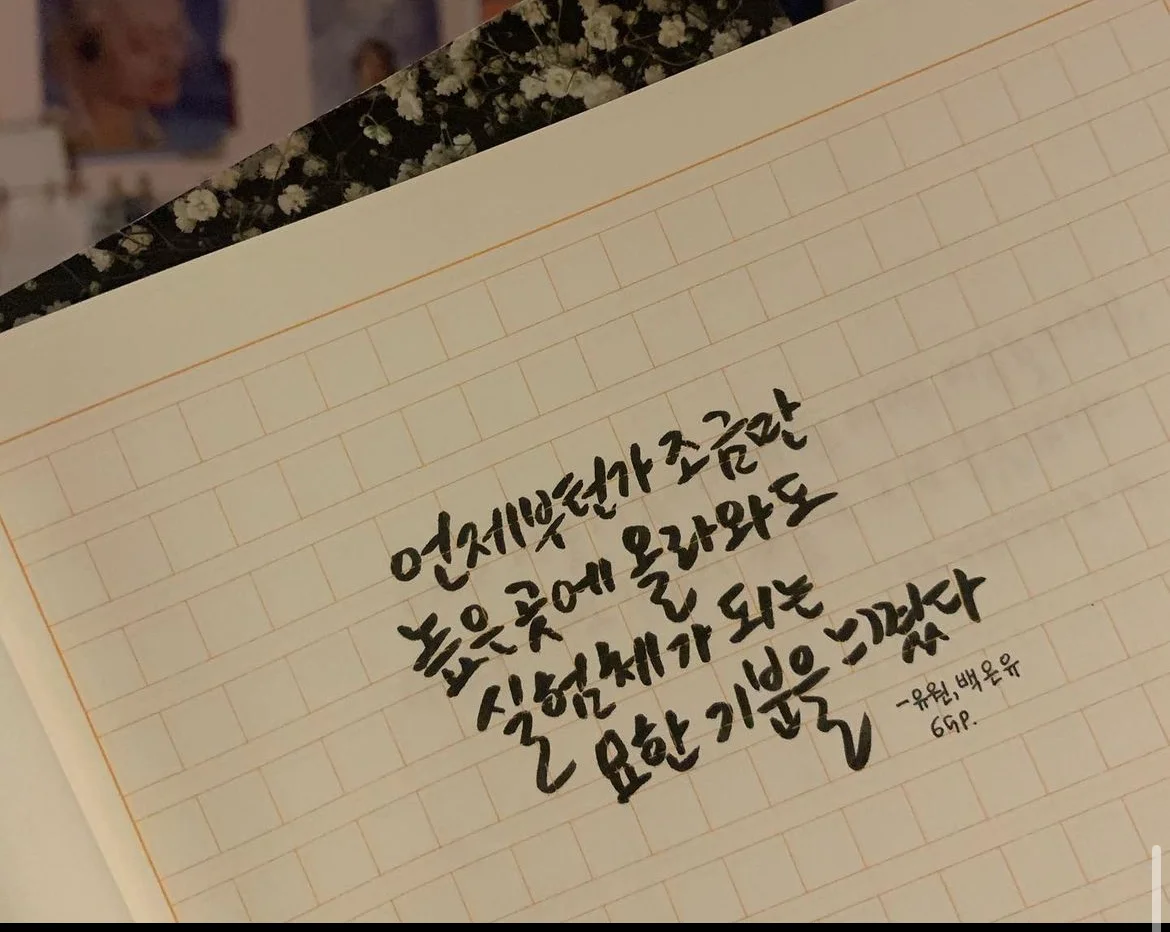 언제부턴가 조금만
높은 곳에 올라와도
실험체가 되는
묘한 기분을 느꼈다
-유원, 백온유
65p.